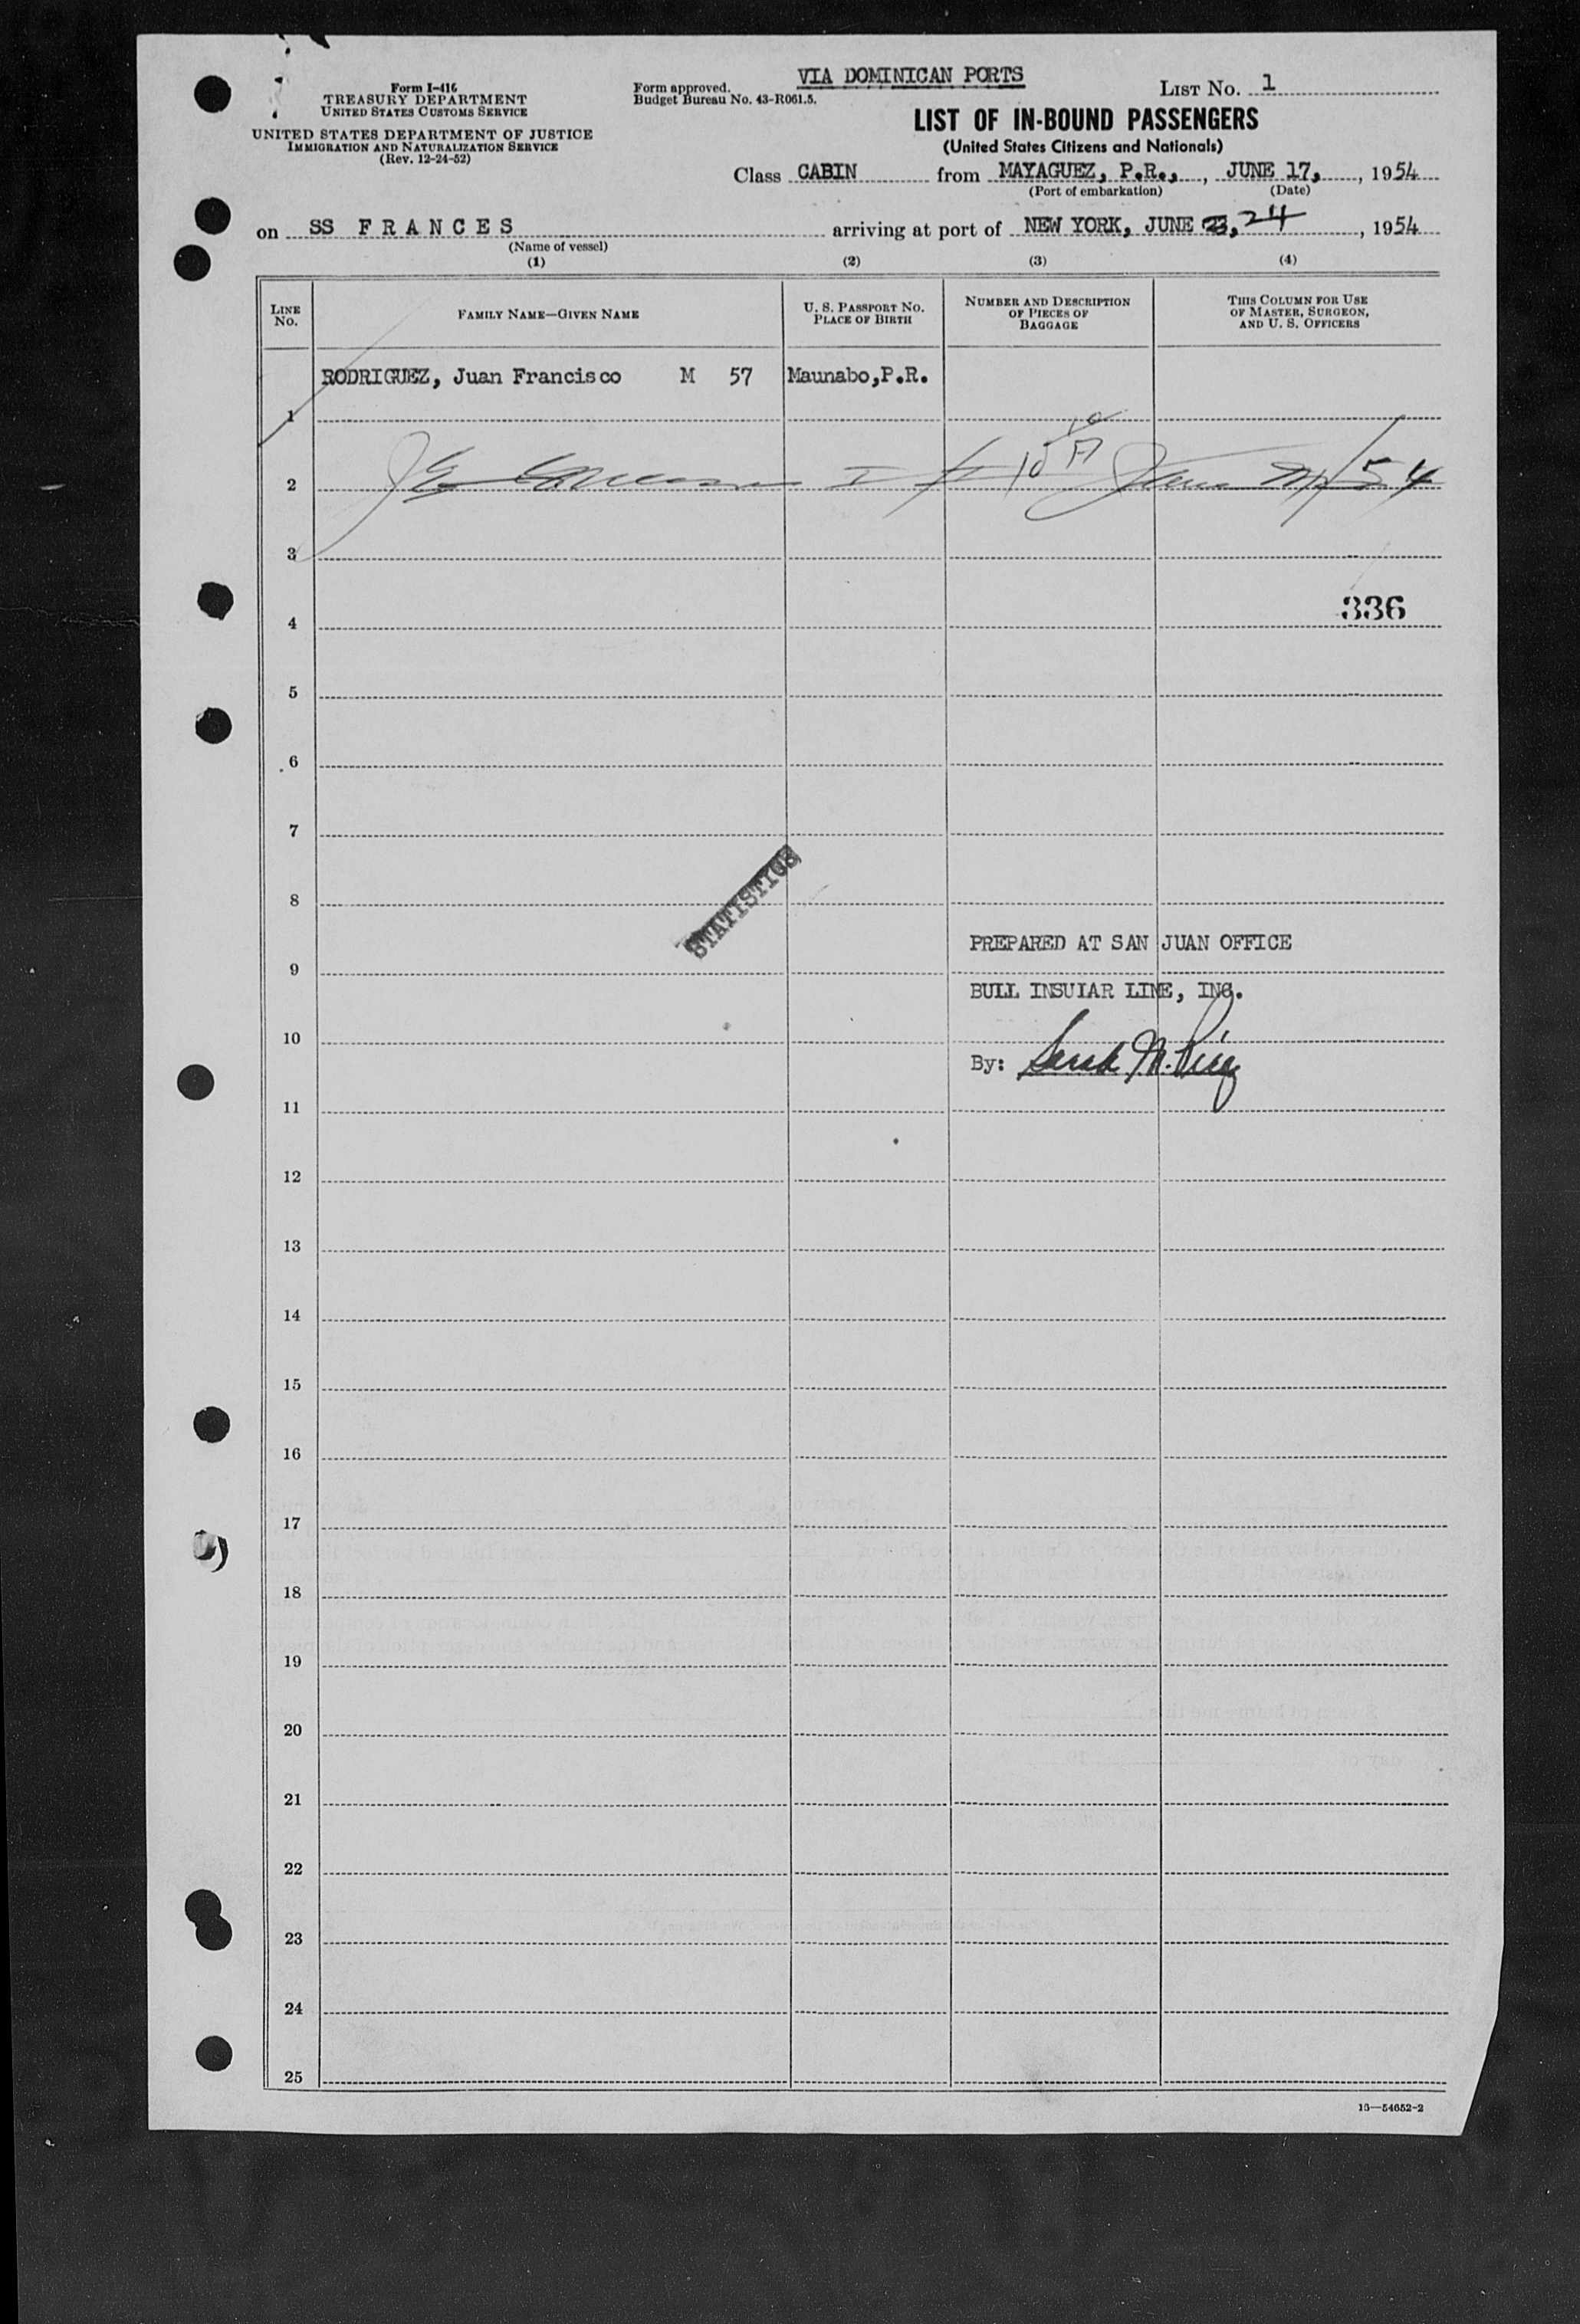 VIA DOMINICAN PORTS
Form I-416
TREASURY DEPARTMENT
UNITED STATES CUSTOMS SERVICE
UNITED STATES DEPARTMENT OF JUSTICE
IMMIGRATION AND NATURALIZATION SERVICE
(Rev. 12-24-52)
Form approved.
Budget Bureau No. 43-R061.5.
LIST NO. 1
LIST OF IN-BOUND PASSENGERS
(United States Citizens and Nationals)
Class CABIN from MAYAGUEZ, P.R., , JUNE 17, , 1954
(Port of embarkation) (Date)
on SS FRANCES arriving at port of NEW YORK, JUNE 24 , 1954
(Name of vessel)
(1) (2) (3) (4)
LINE NO.
FAMILY NAME—GIVEN NAME
U. S. PASSPORT NO.
PLACE OF BIRTH
NUMBER AND DESCRIPTION
OF PIECES OF
BAGGAGE
THIS COLUMN FOR USE
OF MASTER, SURGEON,
AND U. S. OFFICERS
RODRIGUEZ, Juan Francisco M 57 Maunabo,P.R.
1
2
3
336
4
5
6
7
STATISTICS
8
PREPARED AT SAN JUAN OFFICE
9
BULL INSULAR LINE, INC.
10
By:
11
12
13
14
15
16
17
18
19
20
21
22
23
24
25
16—54652-2